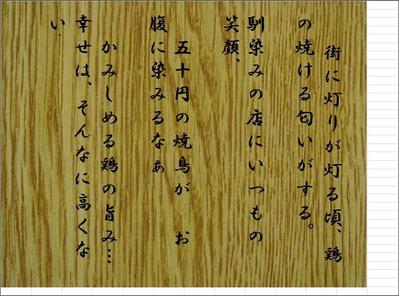 街に灯りが灯る頃、鶏
の焼ける匂いがする。
馴染みの店にいつもの
笑顔、
五十円の焼鳥が　お
腹に染みるなぁ
かみしめる鶏の旨み…
幸せは、そんなに高くな
い.